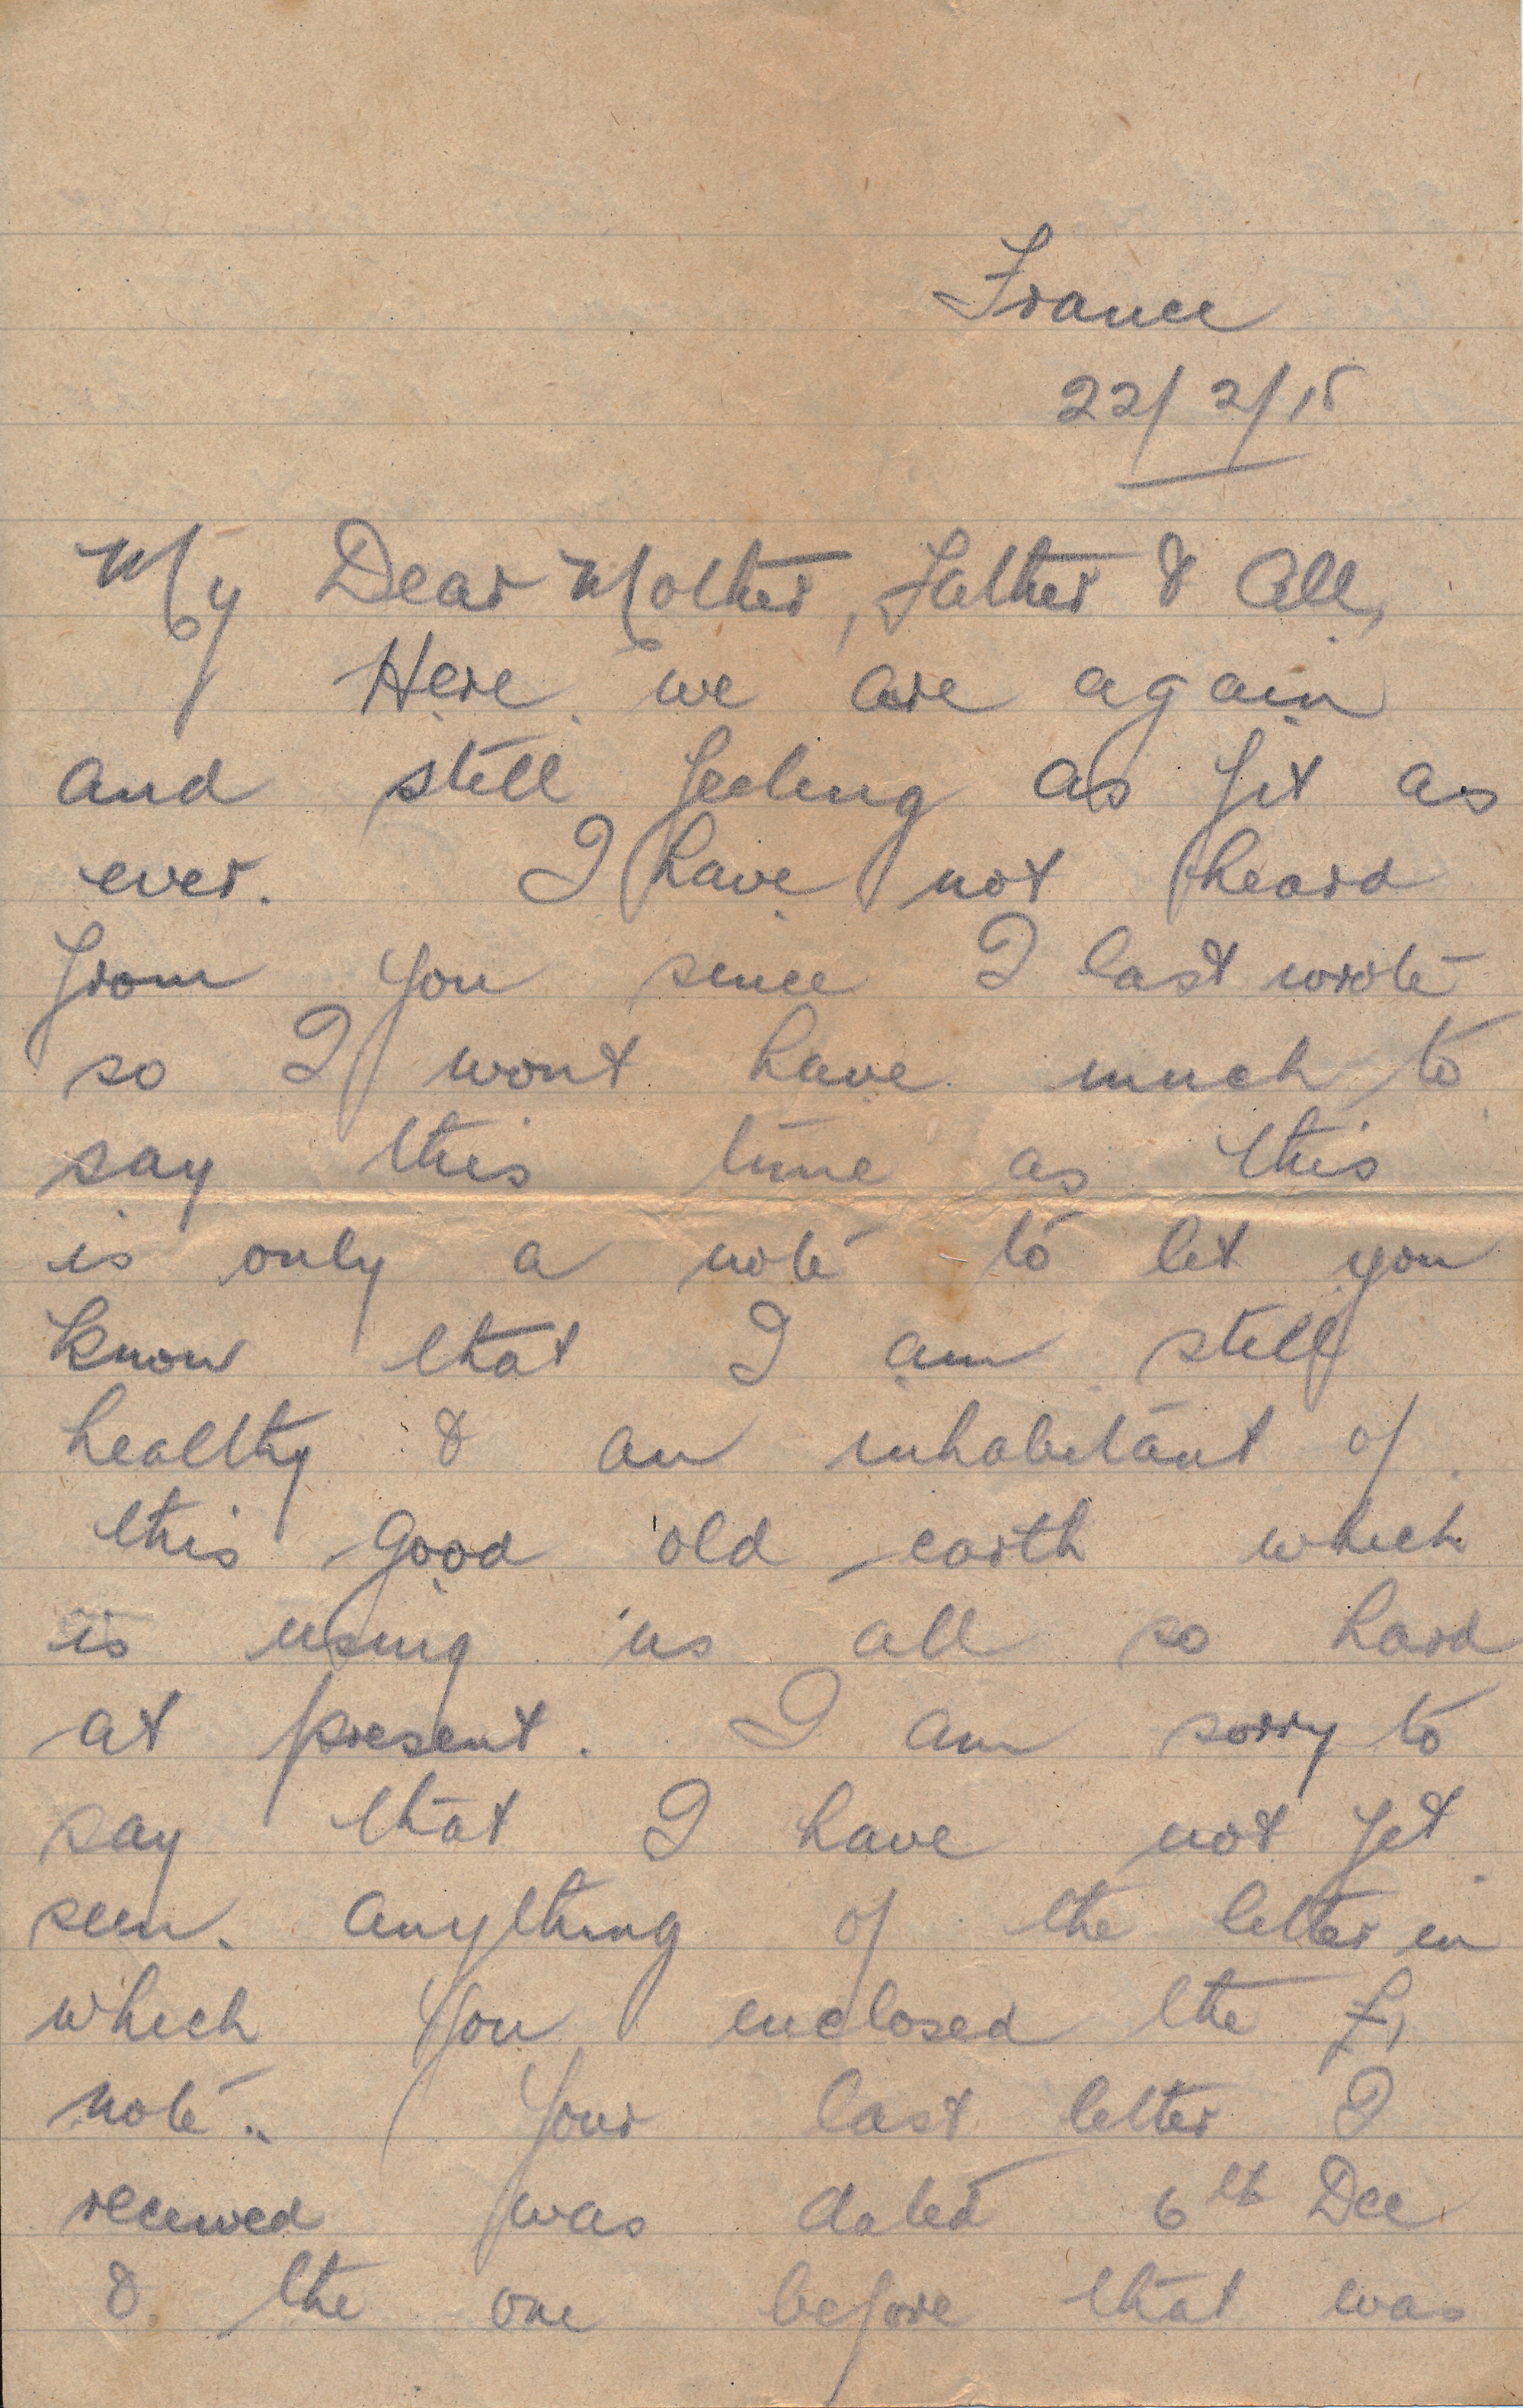 France
22/2/18
My Dear Mother, Father & All,
Here we are again
and still feeling as fit as
ever. I have not heard
from you since I last wrote
so I wont have much to
say this time as this
is only a note to let you
know that I am still
healthy & an inhabitant of
this good old earth which
is using us all so hard
at present. I am sorry to
say that I have not yet
seen anything of the letter in
which you enclosed the £1
note. Your last letter I
received was dated 6th Dec
& the one before that was